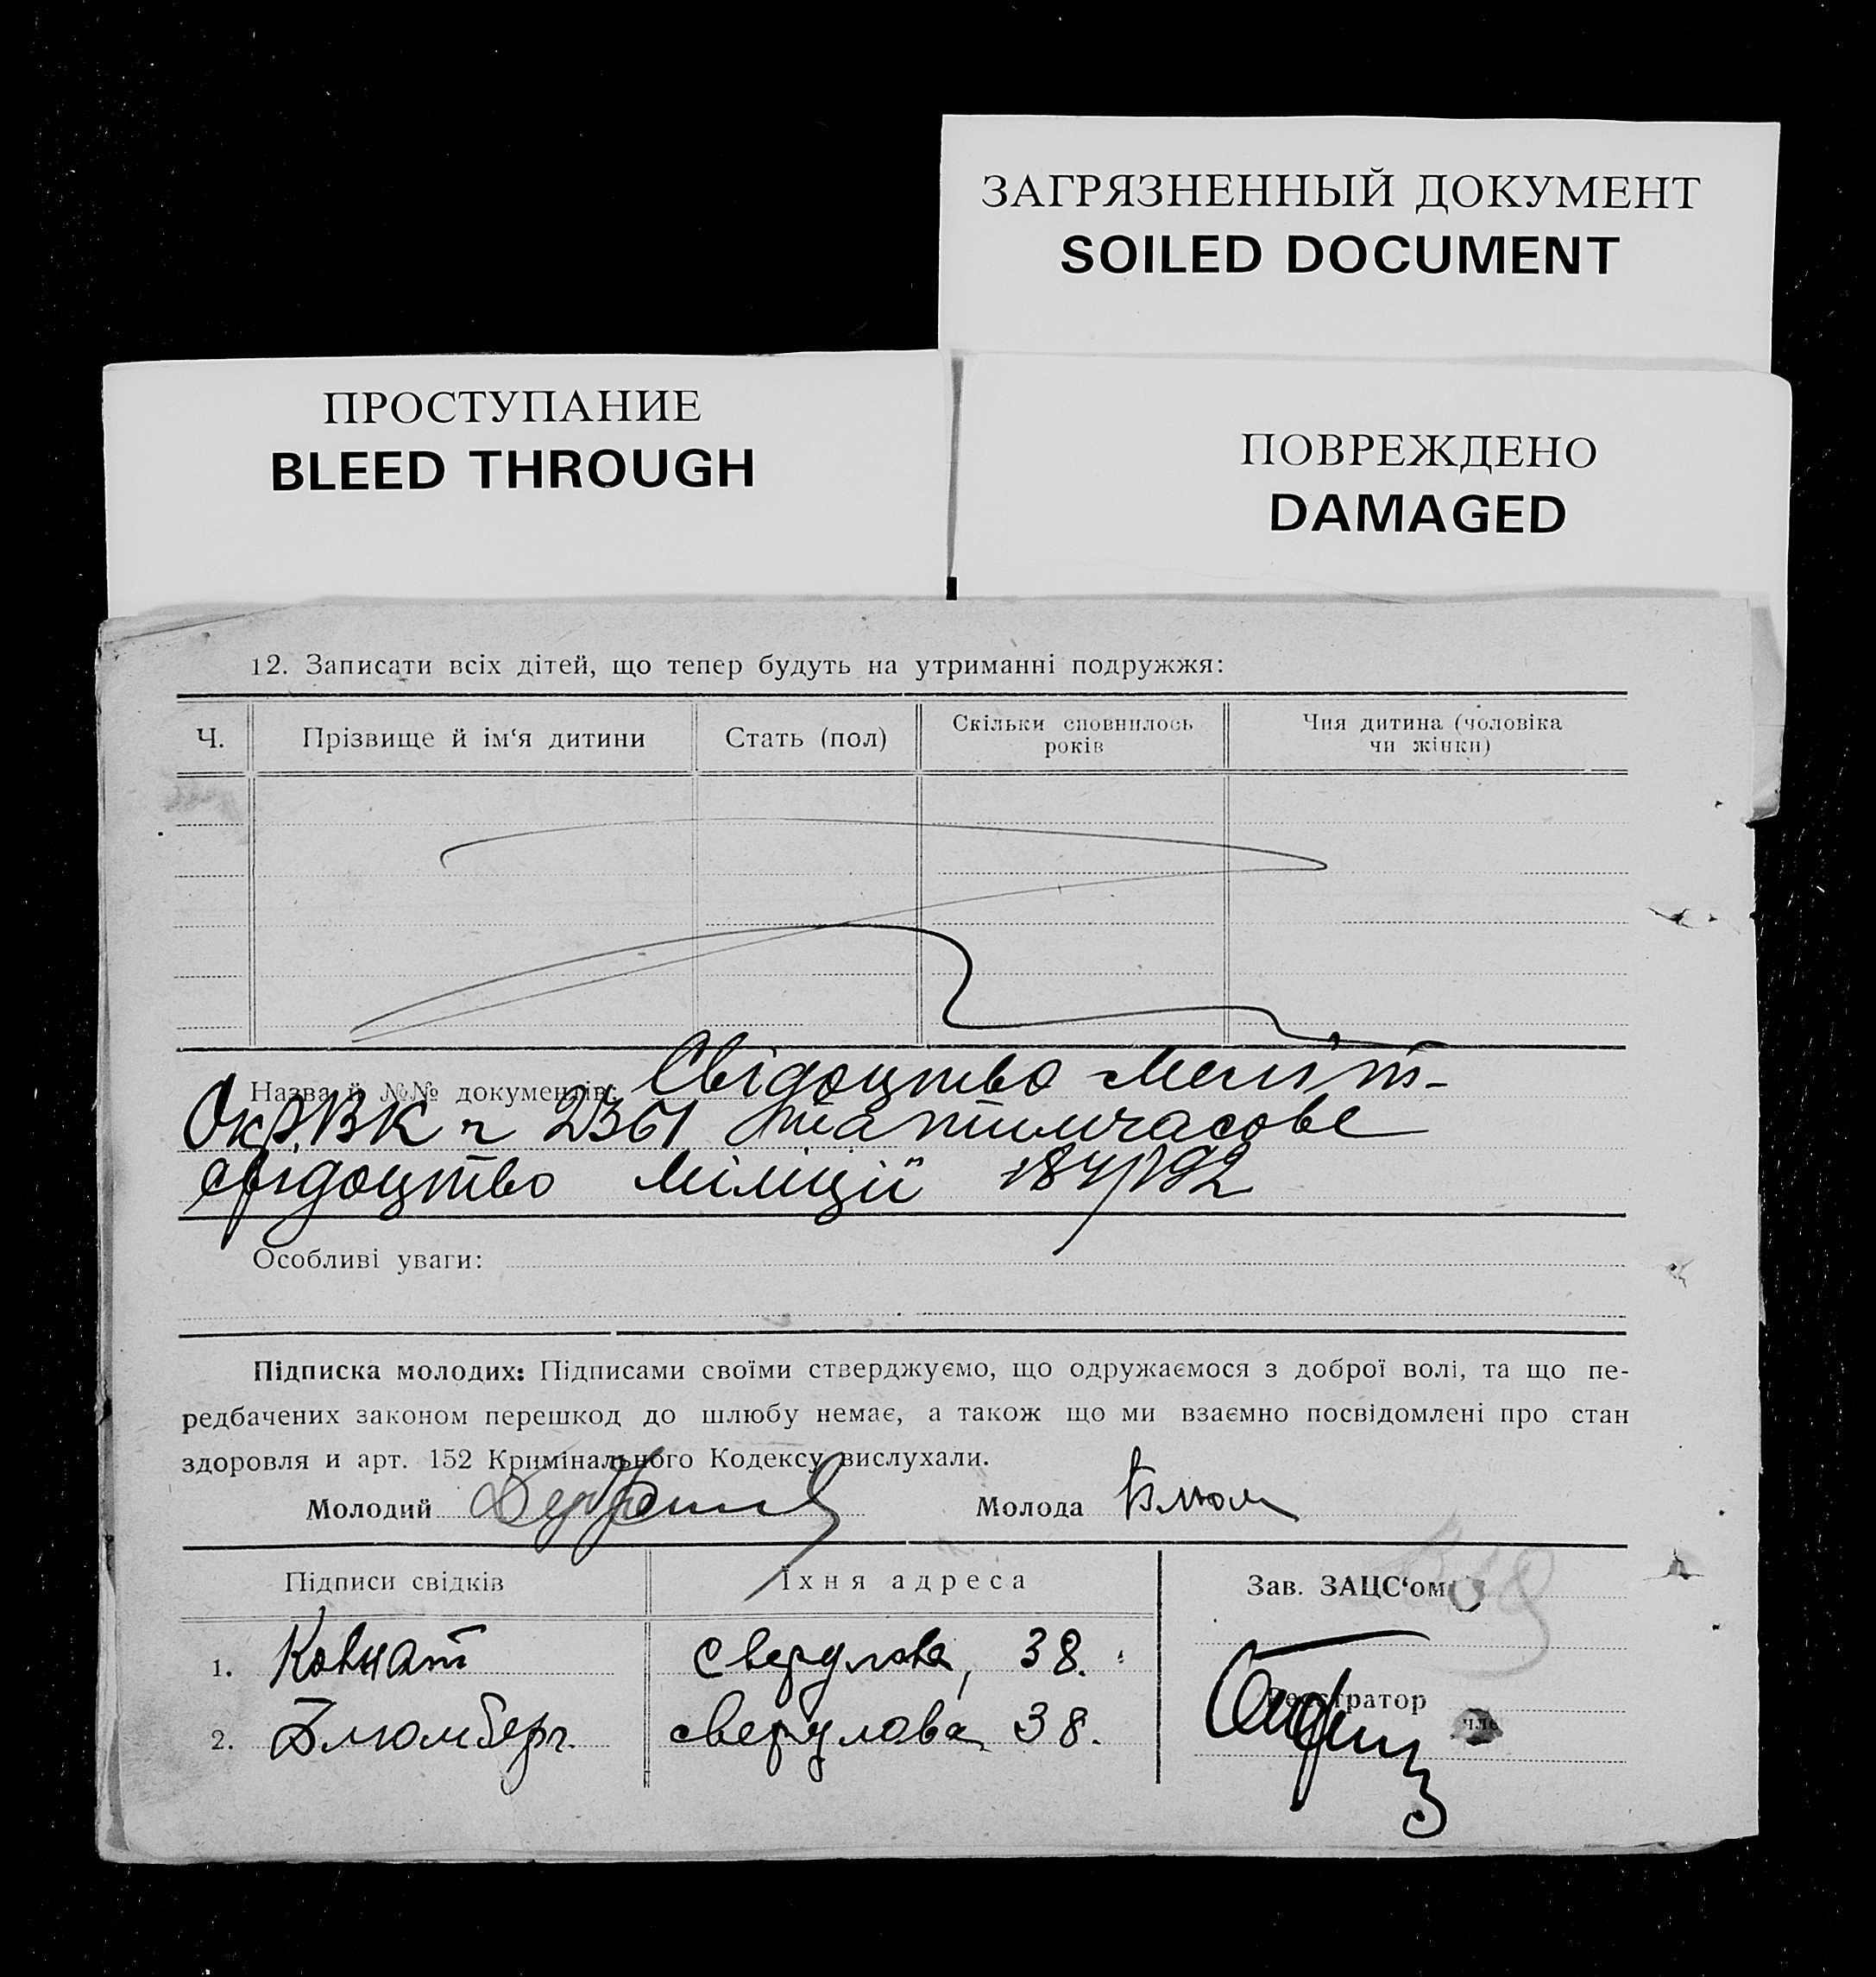 ЗАГРЯЗНЕННЫЙ ДОКУМЕНТ
SOILED DOCUMENT
ПРОСТУПАНИЕ
BLEED THROUGH
ПОВРЕЖДЕНО
DAMAGED
12. Записати всіх дітей, що тепер будуть на утриманні подружжя:
Ч. Прізвище й ім‘я дитини Стать (пол) Скільки сповнилось років Чия дитина (чоловіка чи жінки)
Назва й №№ документів: Свідоцтво Меліт-
Окр.ВК ч 2361 та тимчасове
свідоцтво міліції
Особливі уваги:
Підписка молодих: Підписами своїми стверджуємо, що одружаємося з доброї волі, та що пе-
редбачених законом перешкод до шлюбу немає, а також що ми взаємно посвідомлені про стан
здоровля и арт. 152 Кримінального Кодексу вислухали.
Молодий Молода Блюм
Підписи свідків Їхня адреса Зав. ЗАЦС‘ом
1. Ковнат Свердлова, 38.
Реєстратор
2. Блюмберг. свердлова, 38.